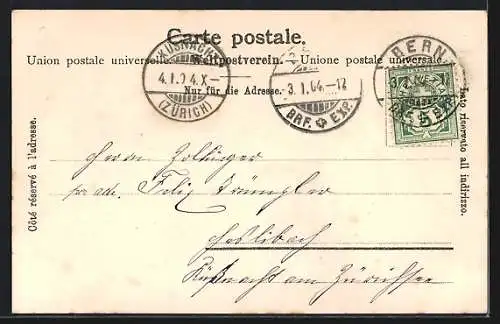 Carte postale.
Union postale universelle. Weltpostverein. Unione postale universale.
Nur für die Adresse.
KÜSNACHT
4.I.04.X-
(ZÜRICH)
3.I.04.-12
BRF. EXP.
BERN
5
Côté réservé à l'adresse.
Lato riservato all indirizzo.
Herrn Zollinger
pr. adr. Felix
Heslibach
Küsnacht am Zürichsee